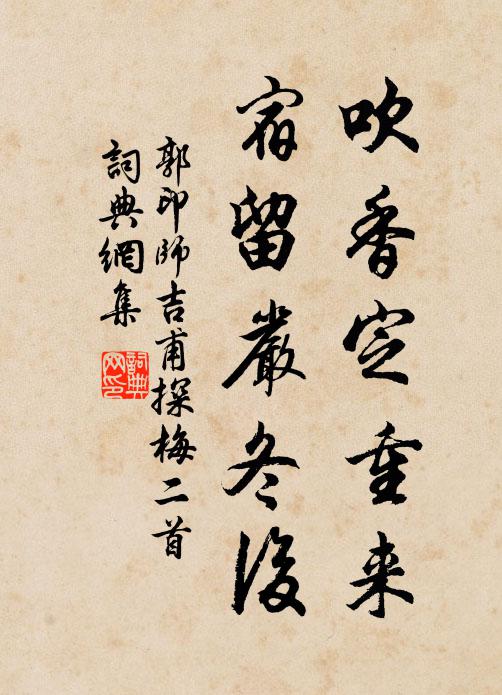 吹香定重来
宿留嚴冬後
郭印師吉甫探梅二首
詞典網集
詞典网印